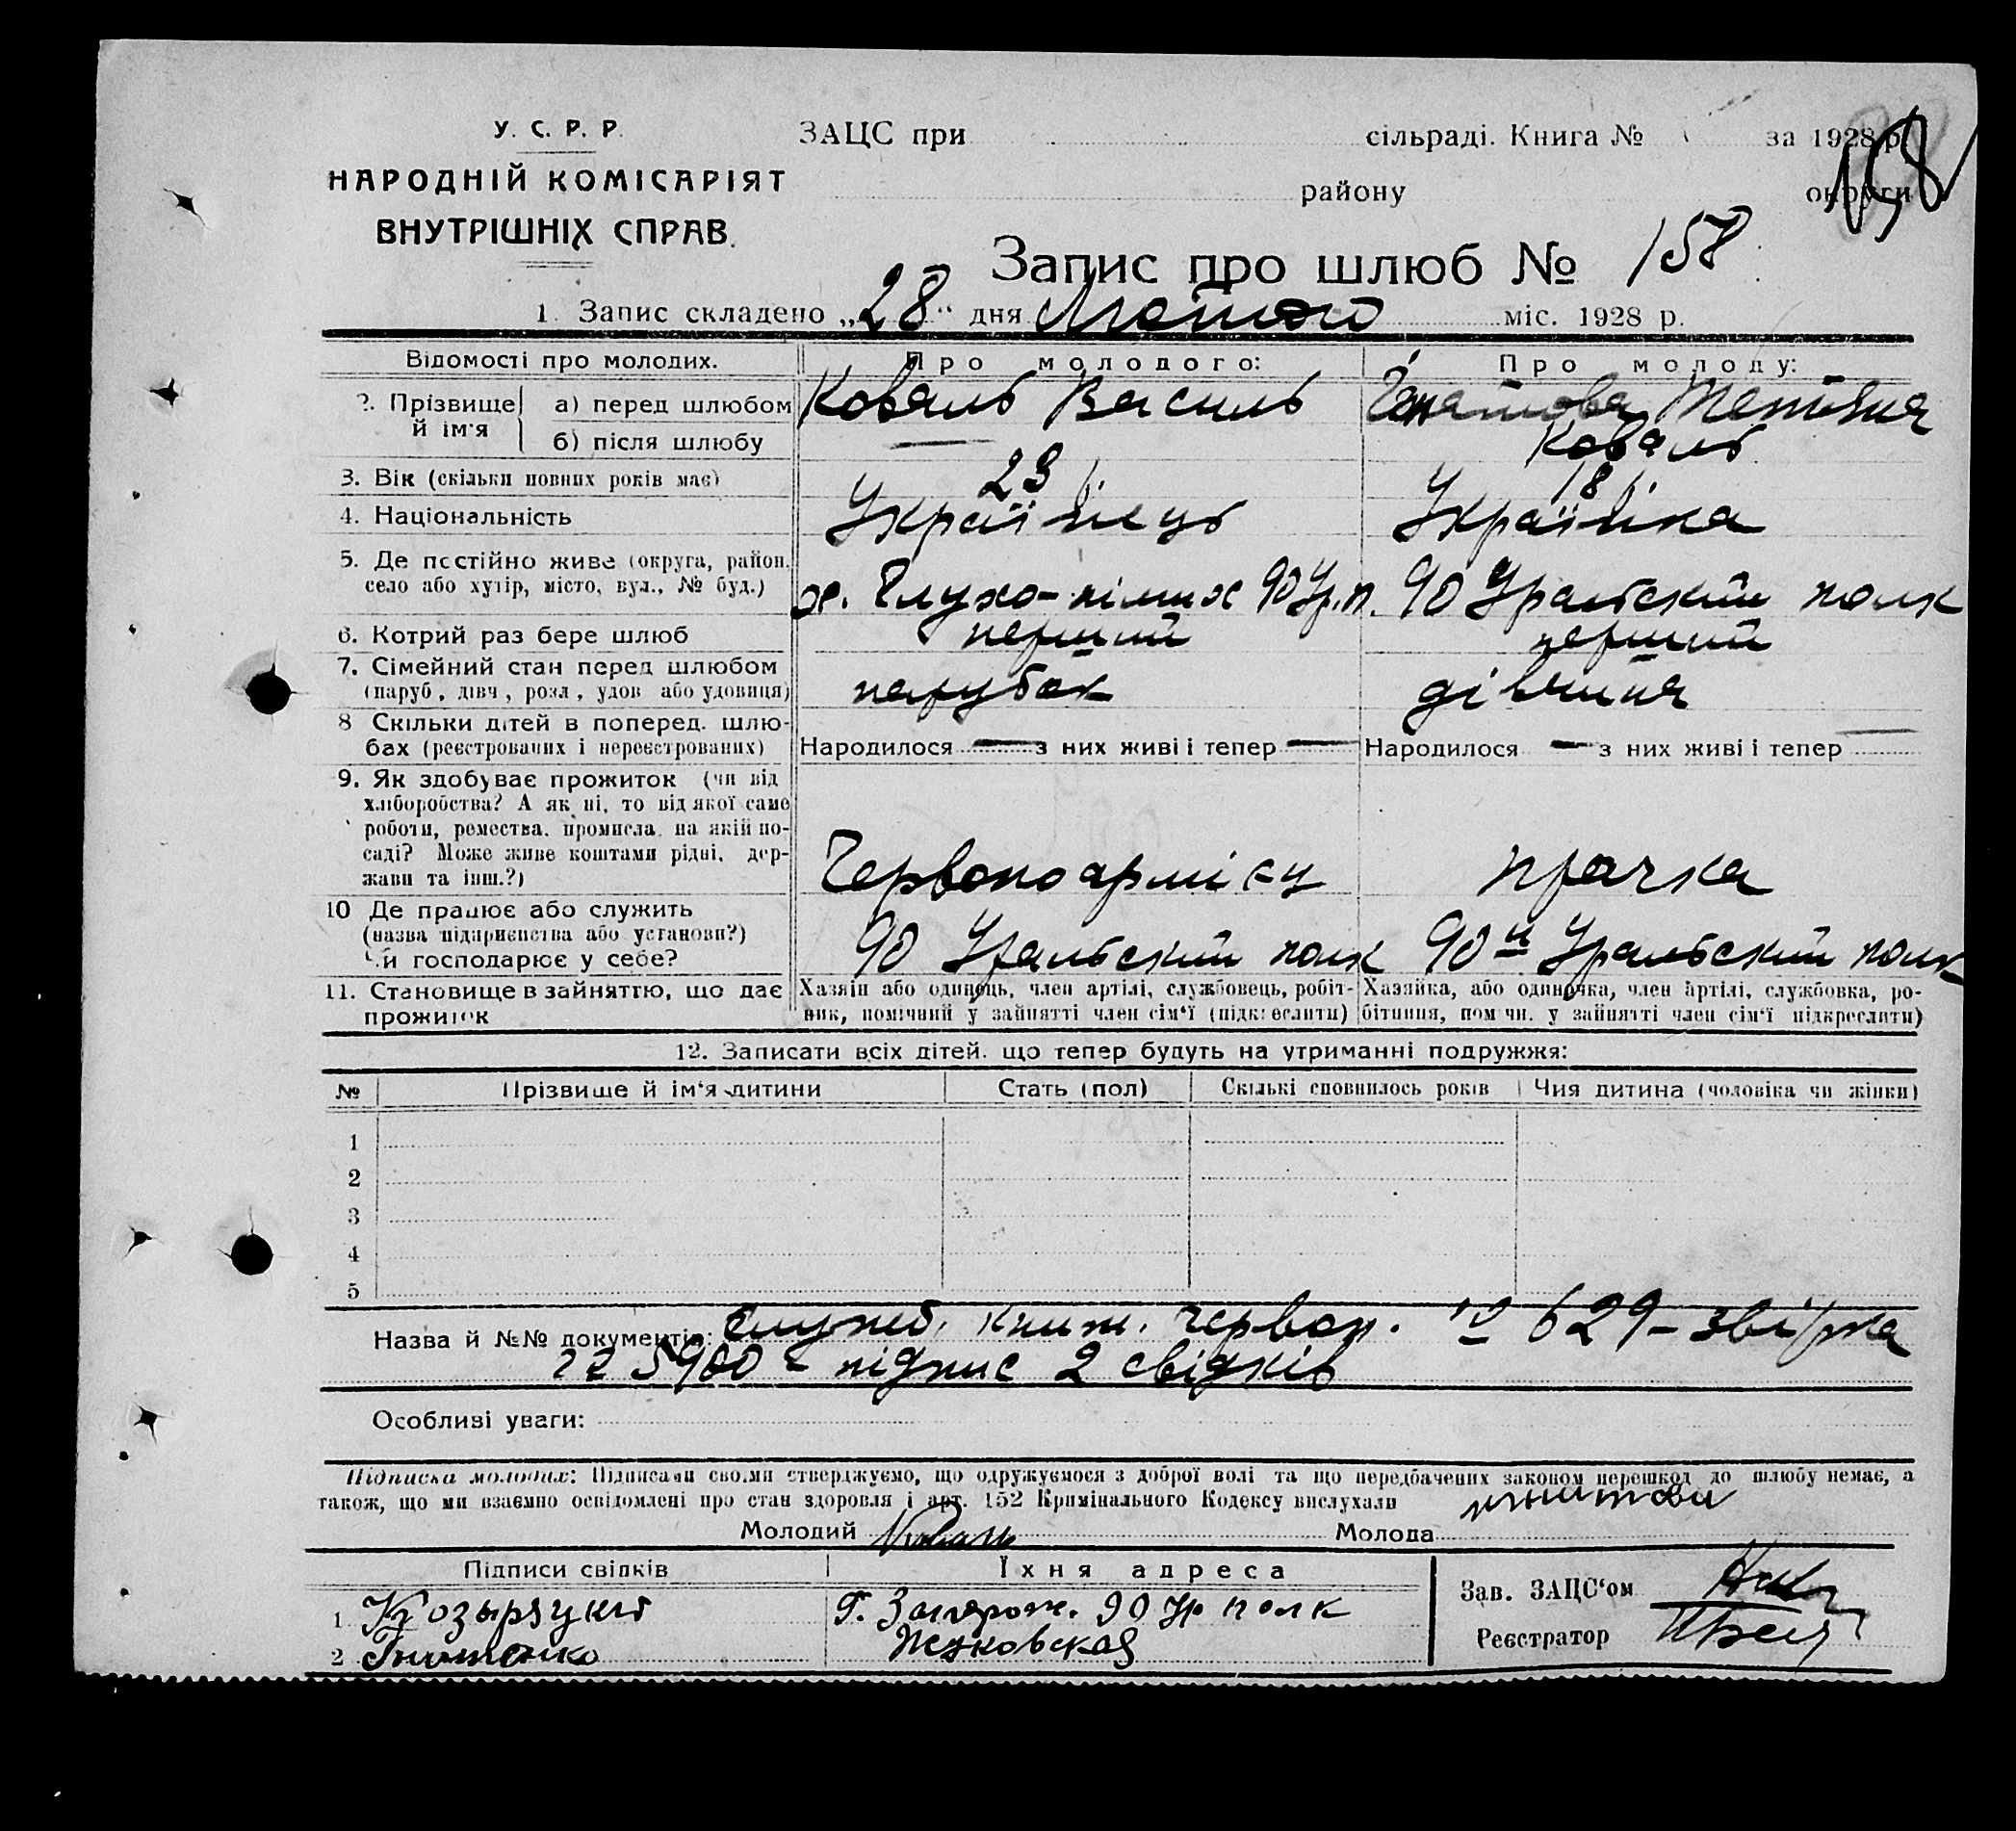 У. С. Р. Р.
НАРОДНІЙ КОМІСАРІЯТ
ВНУТРІШНІХ СПРАВ.
ЗАЦС при сільраді. Книга № за 1928 р.
району округи
158
Запис про шлюб № 158
1. Запис складено „28“ дня Лютого міс. 1928 р.
Відомості про молодих. Про молодого: Про молоду:
2. Прізвище й ім'я а) перед шлюбом Коваль Василь Тетяна
б) після шлюбу — Коваль
3. Вік (скільки повних років має) 23 18
4. Національність Українець Українка
5. Де постійно живе (округа, район, село або хутір, місто, вул., № буд.) Глухо-німих 90 Ур.п. 90 Уральский полк
6. Котрий раз бере шлюб перший перший
7. Сімейний стан перед шлюбом (паруб., дівч., розл., удов. або удовиця) парубок дівчина
8 Скільки дітей в поперед. шлюбах (реєстрованих і нереєстрованих) Народилося — з них живі і тепер — Народилося — з них живі і тепер —
9. Як здобуває прожиток (чи від хліборобства? А як ні, то від якої саме роботи, ремества, промисла, на якій посаді? Може живе коштами рідні, держави та інш.?) Червоноармієц прачка
10 Де працює або служить (назва підприємства або установи?) Чи господарює у себе? 90 Уральский полк 90й Уральский полк
11. Становище в зайняттю, що дає прожиток Хазяін або одинець, член артілі, службовець, робітник, помічний у зайнятті член сім'ї (підкреслити) Хазяйка, або одиночка, член артілі, службовка, робітниця, пом чн. у зайнятті член сім'ї підкреслити)
12. Записати всіх дітей, що тепер будуть на утриманні подружжя:
№ Прізвище й ім'я дитини Стать (пол) Скількі сповнилось років Чия дитина (чоловіка чи жінки)
1
2
3
4
5
Назва й №№ документів: служб. книж. червон. № 629 – звірка
225900 – підпис 2 свідків
Особливі уваги:
Підписка молодих: Підписами своїми стверджуємо, що одружуємося з доброї волі та що передбачених законом перешкод до шлюбу немає, а
також, що ми взаємно освідомлені про стан здоровля і арт. 152 Кримінального Кодексу вислухали
Молодий Коваль Молода
Підписи свідків Їхня адреса
1 Козырзцкій Г. Запорож. 90 Ур полк
2 Гнитенко Жуковская
Зав. ЗАЦС'ом
Реєстратор